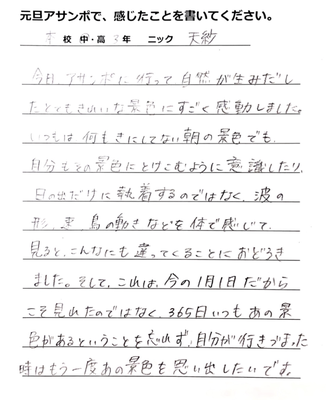 元旦アサンポで、感じたことを書いてください。
本校 中・高 3年 ニック 天紗
今日アサンポに行って自然が生みだし
たとてもきれいな景色にすごく感動しました。
いつもは何もきにしてない朝の景色でも、
自分もその景色にとけこむように意識したり、
日の出だけに執着するのではなく、波の
形、雲、鳥の動きなどを体で感じて、
見ると、こんなにも違ってくることにおどろき
ました。そして、これは、今の1月1日だから
こそ見れたのではなく、365日いつもあの景
色があるということを忘れず、自分が行きづまった
時はもう一度あの景色を思い出したいです。